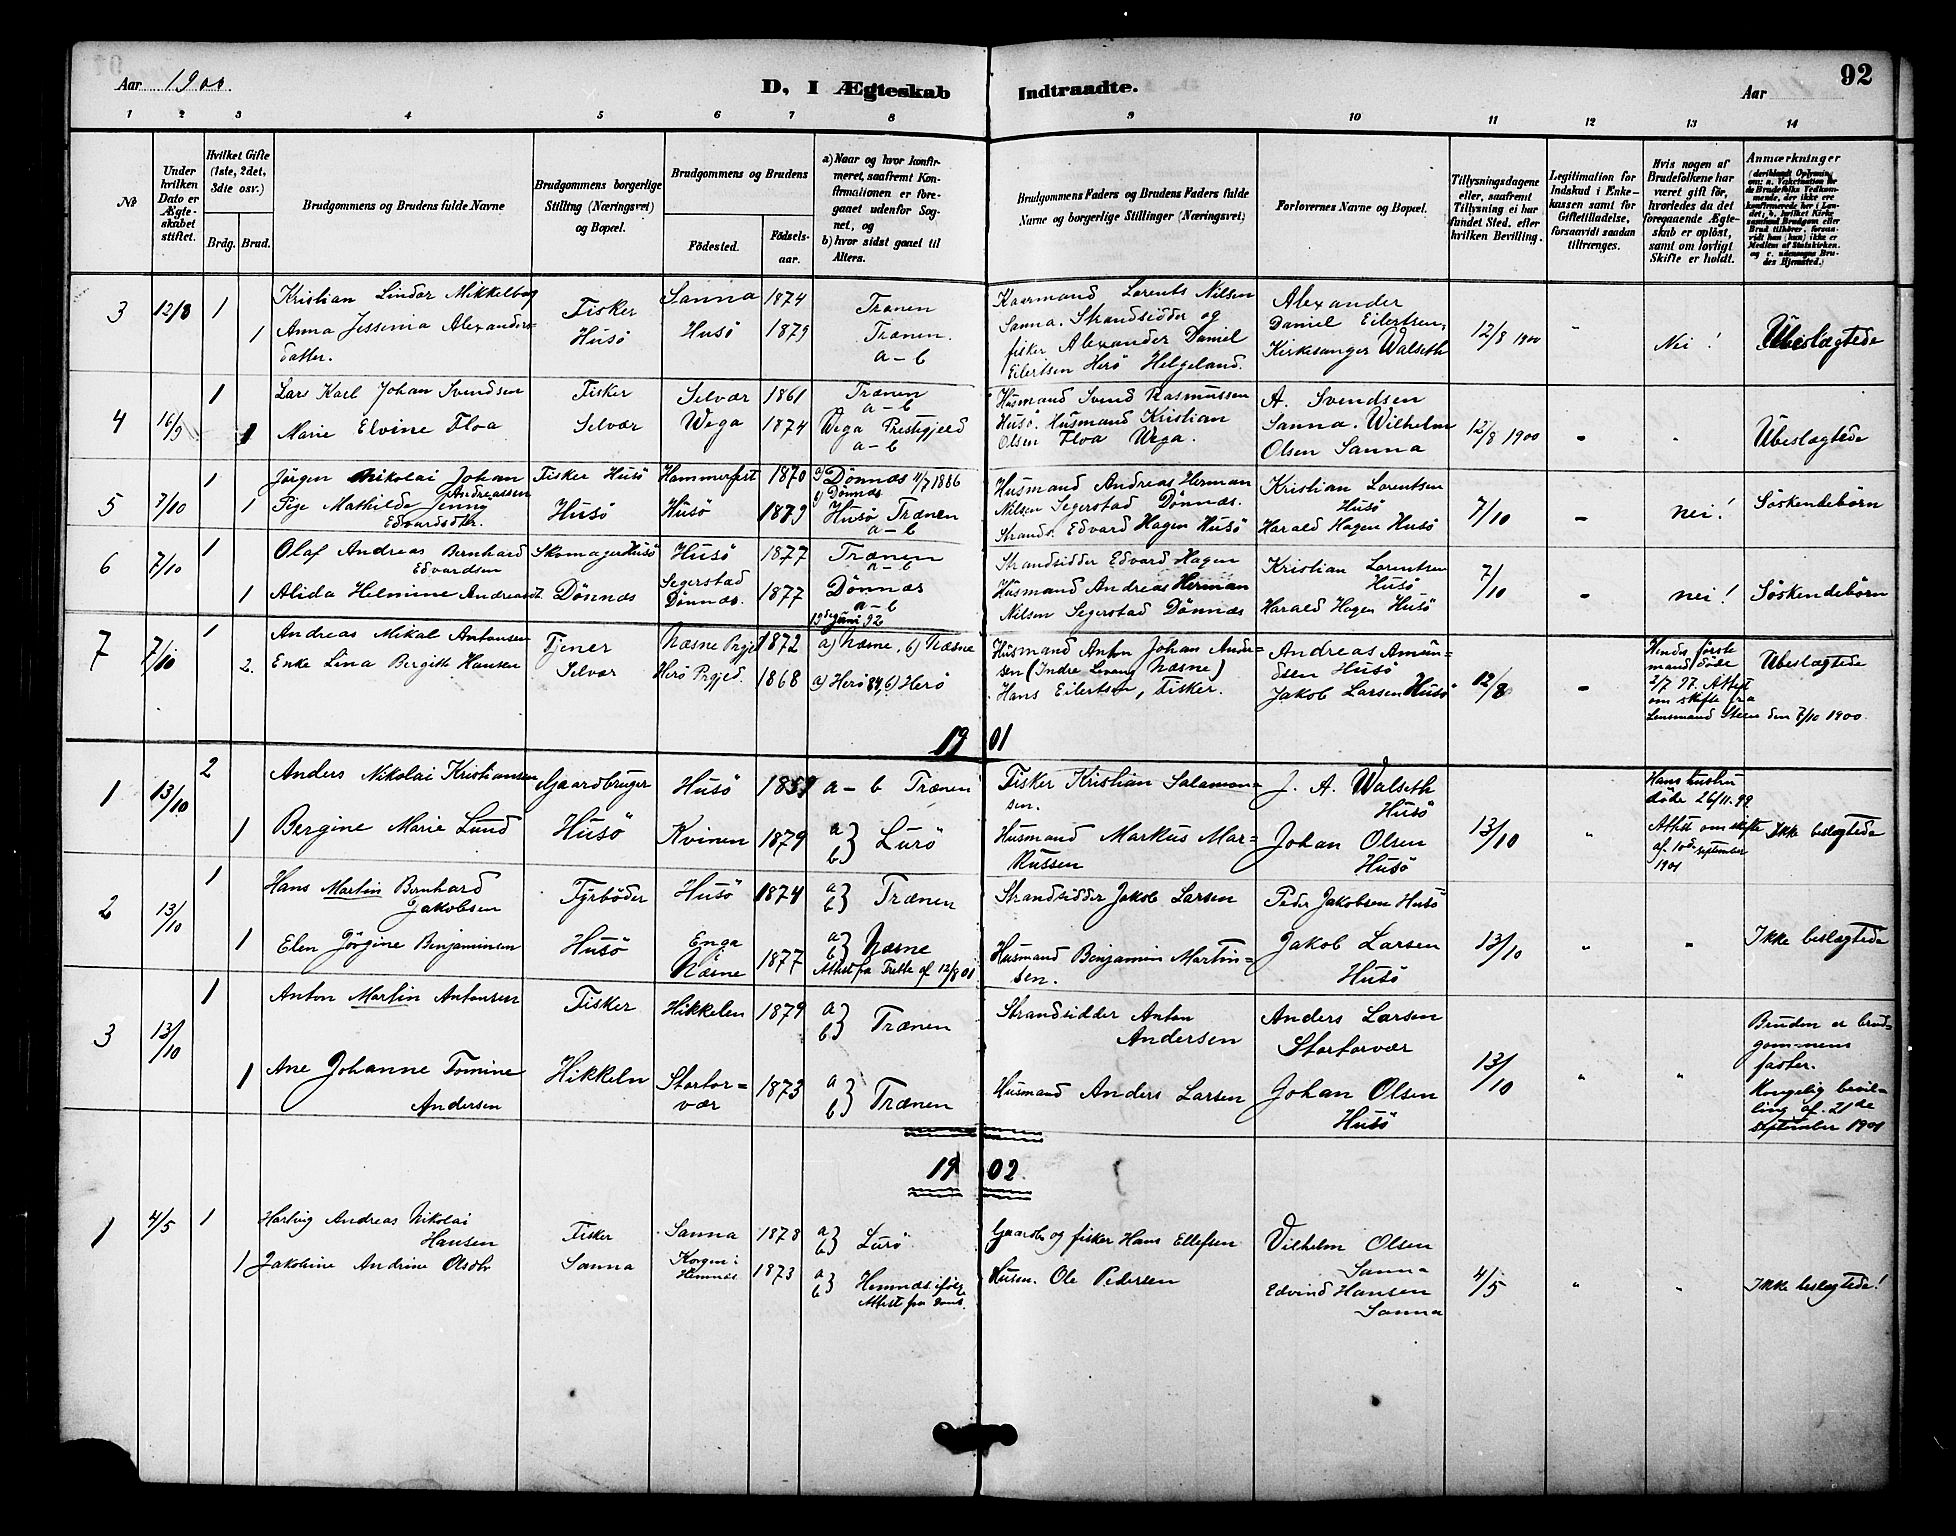 Aar 1900.
D, I Ægteskab Indtraadte.
Aar
92
1 2 3 4 5 6 7 8 9 10 11 12 13 14
No
Under hvilken Dato er Ægteskabet stiftet.
Hvilket Gifte (1ste, 2det, 3die osv.)
Brdg. Brud.
Brudgommens og Brudens fulde Navne
Brudgommens borgerlige Stilling (Næringsvei) og Bopæl.
Brudgommens og Brudens
Fødested.
Fødsels-aar.
a) Naar og hvor konfirmeret, saafremt Konfirmationen er foregaaet udenfor Sognet, og
b) hvor sidst gaaet til Alters.
Brudgommens Faders og Brudens Faders fulde Navne og borgerlige Stillinger (Næringsvei)
Forlovernes Navne og Bopæl.
Tillysningsdagene eller, saafremt Tillysning ei har fundet Sted, efter hvilken Bevilling.
Legitimation for Indskud i Enkekassen samt for Giftetilladelse, forsaavidt saadan tiltrænges.
Hvis nogen af Brudefolkene har været gift før, hvorledes da det foregaaende Ægteskab er opløst, samt om lovligt Skifte er holdt.
Anmærkninger
3 12/8 1 Kristian Lindor Mikkelbog Fisker Sanna 1874 Trænen
1 Anna Jessenia Alexandersdatter. Husö Husö 1879 Trænen. a-b
Kaarmand Lorents Nilsen
Sanna. Strandsidder og
fisker Alexander Daniel
Eilertsen Herö Helgeland.
Alexander
Daniel Eilertsen,
Kirkesanger Walseth
12/8 1900 " Nei! Ubeslægtede
4 16/9 1 Lars Karl Johan Svendsen Fisker Selvær 1861 Trænen a-b
1 Marie Elvine Floa Selvær Wega 1874 Wega Prestegjeld a-b
Husmand Svend Rasmussen
Husö. Husmand Kristian
Olsen Floa Wega.
A. Svendsen
Sanna. Wilhelm
Olsen Sanna
12/8 1900 - " Ubeslægtede
5 7/10 1 Jörgen Nikolai Johan Andreassen Fisker Husö Hammerfest 1870 a) Dönnæs 11/7 1886 b) Dönnæs
1 Pije Mathilde Jenny Edvardsdtr. Husö Husö 1879 Husö Trænen a-b
Husmand Andreas Herman
Nilsen Segerstad Dönnæs.
Strands. Edvard Hagen Husö
Kristian Lorentsen
Husö
Harald Hagen Husö
7/10 - nei! Söskendebörn
6 7/10 1 Olaf Andreas Bernhard Edvardsen Skomager Husö Husö 1877 Trænen a-b
1 Alida Helmine Andreasdt. Dönnæs Segerstad Dönnæs. 1877 Dönnæs a-b
Strandsidder Edvard Hagen
Husmand Andreas Herman
Nilsen Segerstad Dönnæs
Kristian Lorentsen
Husö
Harald Hagen Husö
7/10 - nei! Söskendebörn
7 7/10 1 Andreas Mikal Antonsen Tjener Næsne Prgjd 1872 19de juni 92 a) Næsne, b) Næsne
2. Enke Lina Bergitte Hansen Selvær Herö Prgjed. 1868 a) Herö 84, b) Herö
Husmand Anton Johan Andersen (Indre Levang Næsne)
Hans Eilertsen, Fisker.
Andreas Amundsen Husö
Jakob Larsen Husö
12/8 - Hendes förste
mand döde
2/7 97. Attest
om skifte fra
Lensmand Steen den 7/10 1900.
Ubeslægtede
1901
1 13/10 2 Anders Nikolai Kristiansen Gaardbruger Husö 1851 a-b Trænen
1 Bergine Marie Lund Husö Kvinen 1879 a) b) Lurö
Fisker Kristian Salamonsen.
Husmand Markus Markussen
J. A. Walseth
Husö
Johan Olsen
Husö
13/10 " Hans hustru
döde 26/11.99
Attest om skifte
af 10de september
1901
Ikke beslægtede
2 13/10 1 Hans Martin Bernhard Jakobsen Fyrböder Husö 1874 a) b) Trænen
1 Elen Jörgine Benjaminsen Husö Enga Næsne 1877 a) b) Næsne
Attest fra Trette af 12/8 01
Strandsidder Jakob Larsen
Husmand Benjamin Martinsen.
Peder Jakobsen Husö
Jakob Larsen
Husö
13/10 " " Ikke beslægtede
3 13/10 1 Anton Martin Antonsen Fisker Hikkelen 1879 a) b) Trænen
1 Ane Johanne Tomine Andersen Hikkeln Stortorvær 1873 a) b) Trænen
Strandsidder Anton
Andersen
Husmand Anders Larsen
Anders Larsen
Stortorvær
Johan Olsen
Husö
13/10 " " Bruden er brudgommens
faster.
Kongelig bevilling af. 21de
september 1901
1902.
1 4/5 1 Hartvig Andreas Nikolai Hansen Fisker Sanna 1878 a) b) Lurö
1 Jakobine Andrine Olsdtr Sanna Korgen i Hemnæs 1873 a) b) Hemnæs ifölge
Attest fra
Gaardb og fisker Hans Ellefsen
Husm. Ole Pedersen
Vilhelm Olsen
Sanna
Edvind Hansen
Sanna
4/5 " " Ikke beslægtede!